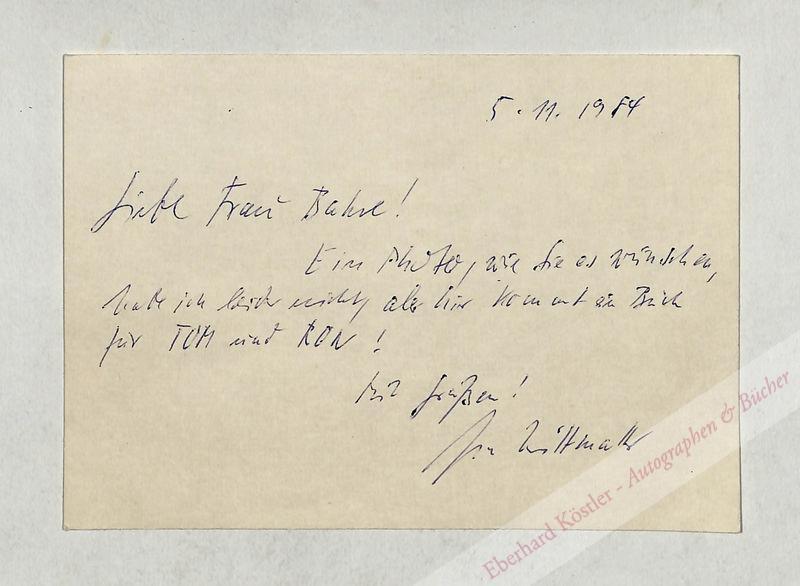 5. 11. 1984
Liebe Frau Bahre!
Ein Photo, wie Sie es wünschen,
habe ich leider nicht, aber hier kommt ein Buch
für TOM und RON!
Mit Grüßen!
Wittmatter
Eberhard Köstler - Autographen & Bücher